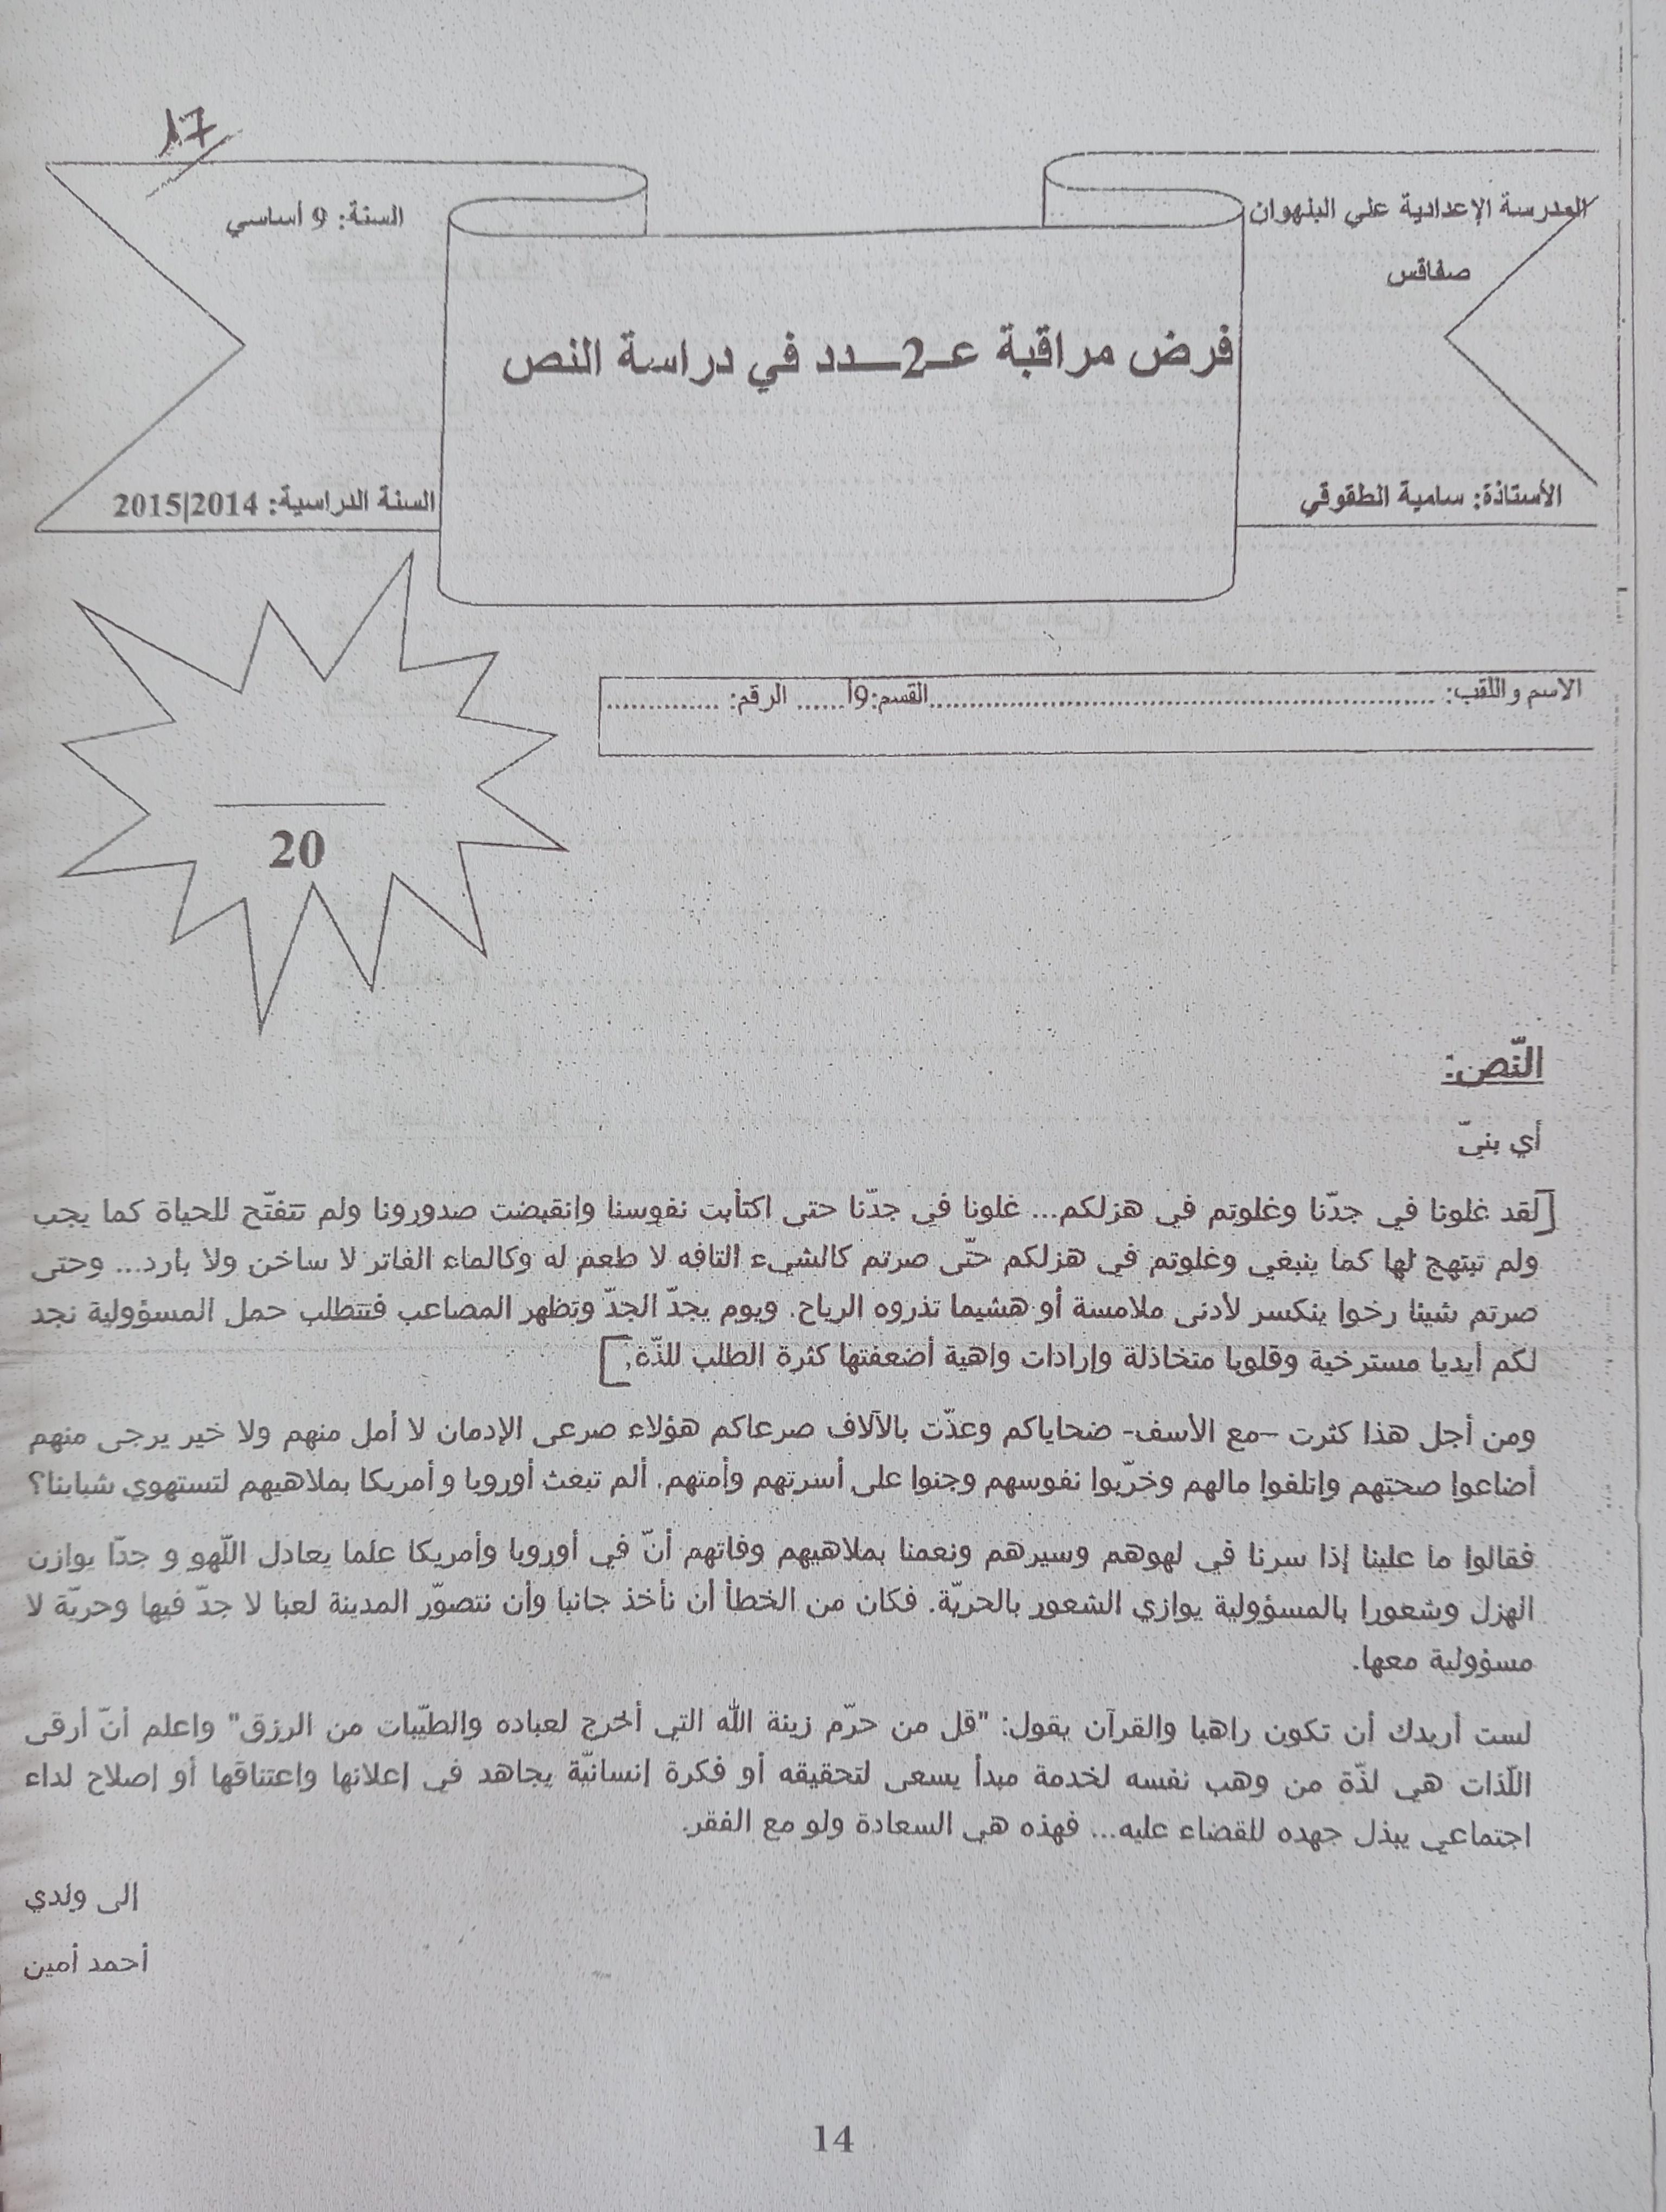 17
المدرسة الإعدادية علي البلهوان
السنة: 9 أساسي
صفاقس
فرض مراقبة عـ2ـدد في دراسة النص
الأستاذة: سامية الطقوقي
السنة الدراسية: 2014|2015
الاسم واللقب: ........................................ القسم: 9أ...... الرقم: ..............
20
النّص:
أي بنيّ
[لقد غلونا في جدّنا وغلوتم في هزلكم... غلونا في جدّنا حتى اكتأبت نفوسنا وانقبضت صدورونا ولم تتفتّح للحياة كما يجب
ولم تبتهج لها كما ينبغي وغلوتم في هزلكم حتّى صرتم كالشيء التافه لا طعم له وكالماء الفاتر لا ساخن ولا بارد... وحتى
صرتم شيئا رخوا ينكسر لأدنى ملامسة أو هشيما تذروه الرياح. ويوم يجدّ الجدّ وتظهر المصاعب فتتطلب حمل المسؤولية نجد
لكم أيديا مسترخية وقلوبا متخاذلة وإرادات واهية أضعفتها كثرة الطلب للذّة.]
ومن أجل هذا كثرت –مع الأسف- ضحاياكم وعدّت بالآلاف صرعاكم هؤلاء صرعى الإدمان لا أمل منهم ولا خير يرجى منهم
أضاعوا صحتهم واتلفوا مالهم وخرّبوا نفوسهم وجنوا على أسرتهم وأمتهم. ألم تبعث أوروبا و أمريكا بملاهيهم لتستهوي شبابنا؟
فقالوا ما علينا إذا سرنا في لهوهم وسيرهم ونعمنا بملاهيهم وفاتهم أنّ في أوروبا وأمريكا علما يعادل اللّهو و جدّا يوازن
الهزل وشعورا بالمسؤولية يوازي الشعور بالحريّة. فكان من الخطأ أن نأخذ جانبا وأن نتصوّر المدينة لعبا لا جدّ فيها وحريّة لا
مسؤولية معها.
لست أريدك أن تكون راهبا والقرآن يقول: "قل من حرّم زينة الله التي أخرج لعباده والطيّبات من الرزق" واعلم أنّ أرقى
اللّذات هي لذّة من وهب نفسه لخدمة مبدأ يسعى لتحقيقه أو فكرة إنسانيّة يجاهد في إعلانها واعتناقها أو إصلاح لداء
اجتماعي يبذل جهده للقضاء عليه... فهذه هي السعادة ولو مع الفقر.
إلى ولدي
أحمد أمين
14